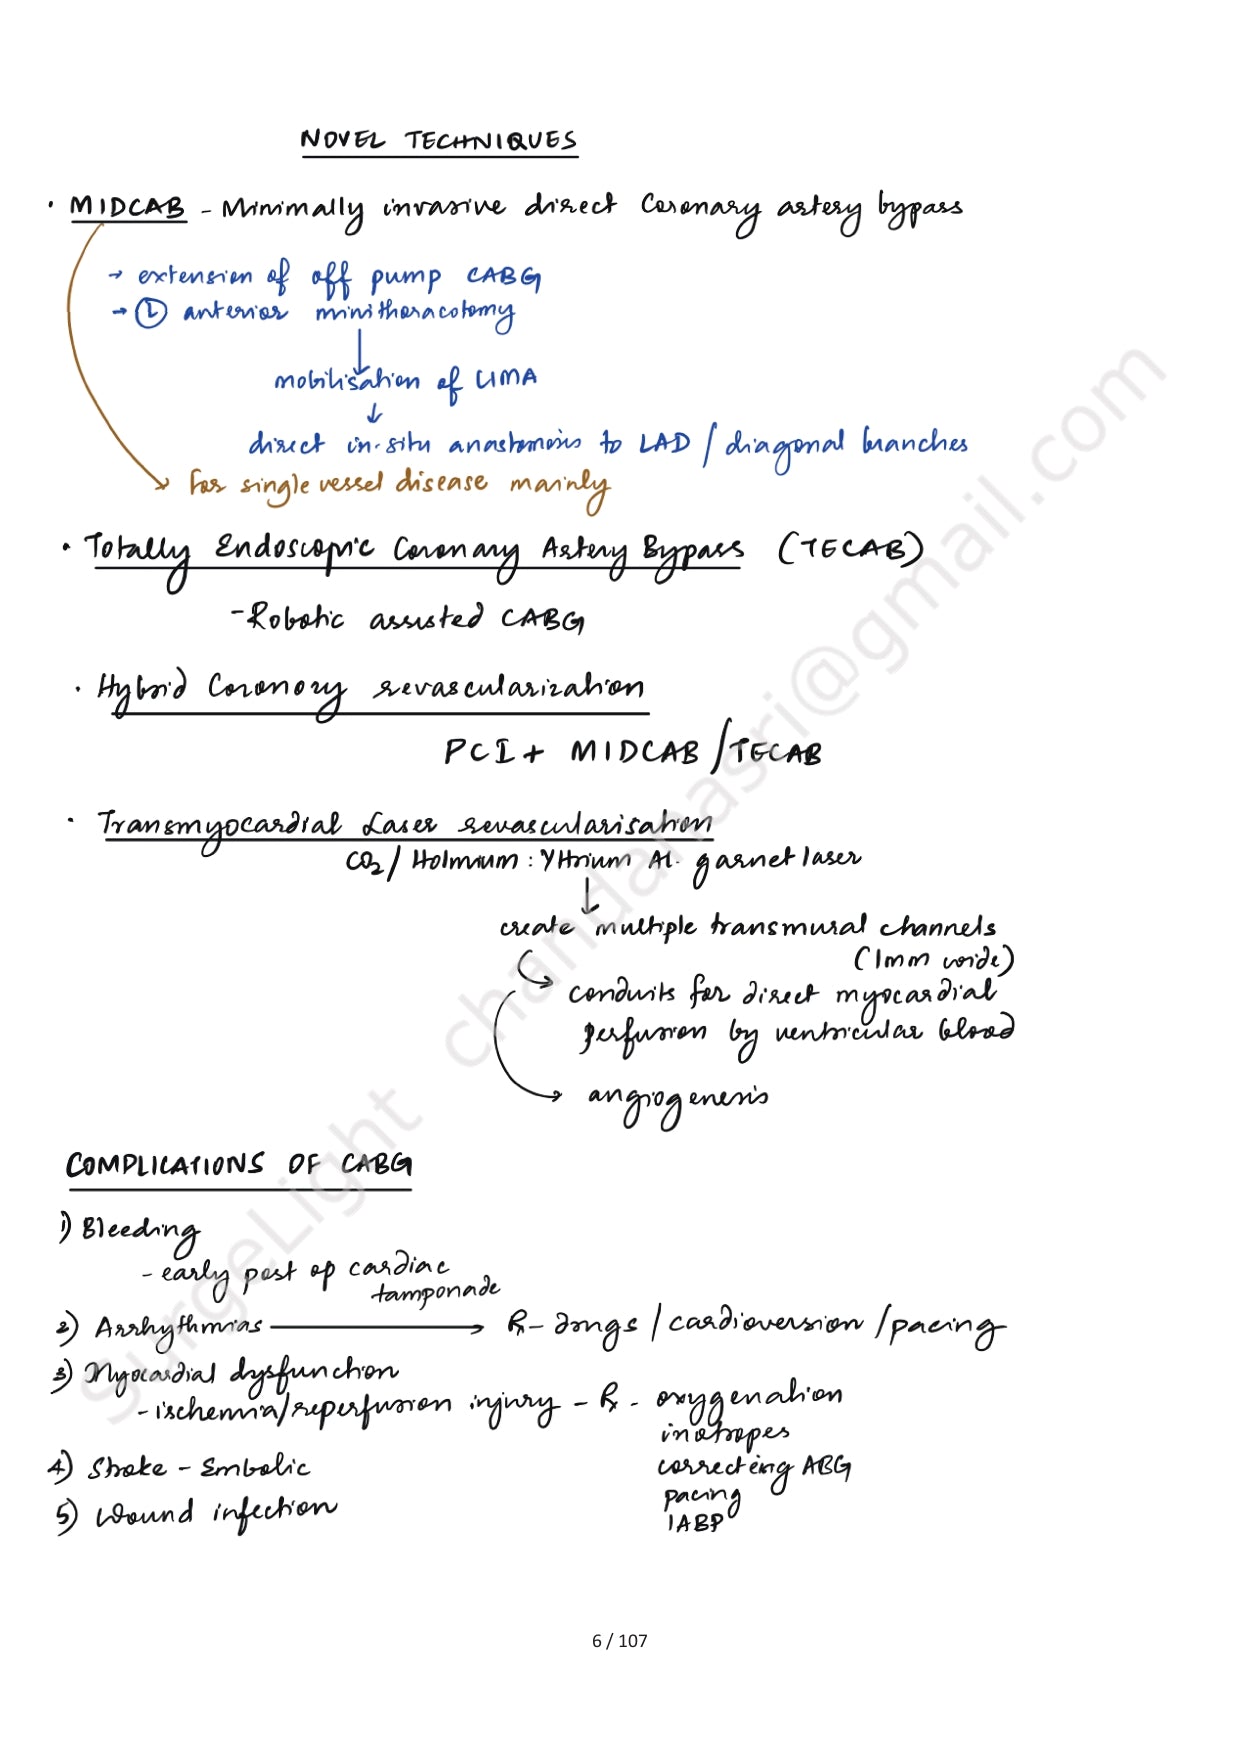 NOVEL TECHNIQUES
· MIDCAB - Minimally invasive direct Coronary artery bypass
→ extension of off pump CABG
→ Ⓛ anterior minithoracotomy
↓
mobilisation of LIMA
↓
direct in-situ anastomosis to LAD / diagonal branches
→ for single vessel disease mainly
· Totally Endoscopic Coronary Artery Bypass (TECAB)
- Robotic assisted CABG
· Hybrid Coronory revascularization
PCI + MIDCAB / TECAB
· Transmyocardial Laser revascularisation
CO2 / Holmium : Yttrium Al. garnet laser
↓
create multiple transmural channels
(1mm wide)
→ conduits for direct myocardial
perfusion by ventricular blood
→ angiogenesis
COMPLICATIONS OF CABG
1) Bleeding
- early post op cardiac
tamponade
2) Arrhythmias → Rx - drugs / cardioversion / pacing
3) Myocardial dysfunction
- ischemia/reperfusion injury - Rx - oxygenation
inotropes
4) Stroke - Embolic
correcting ABG
pacing
5) Wound infection
IABP
SurgeLight chandanasri@gmail.com
6 / 107